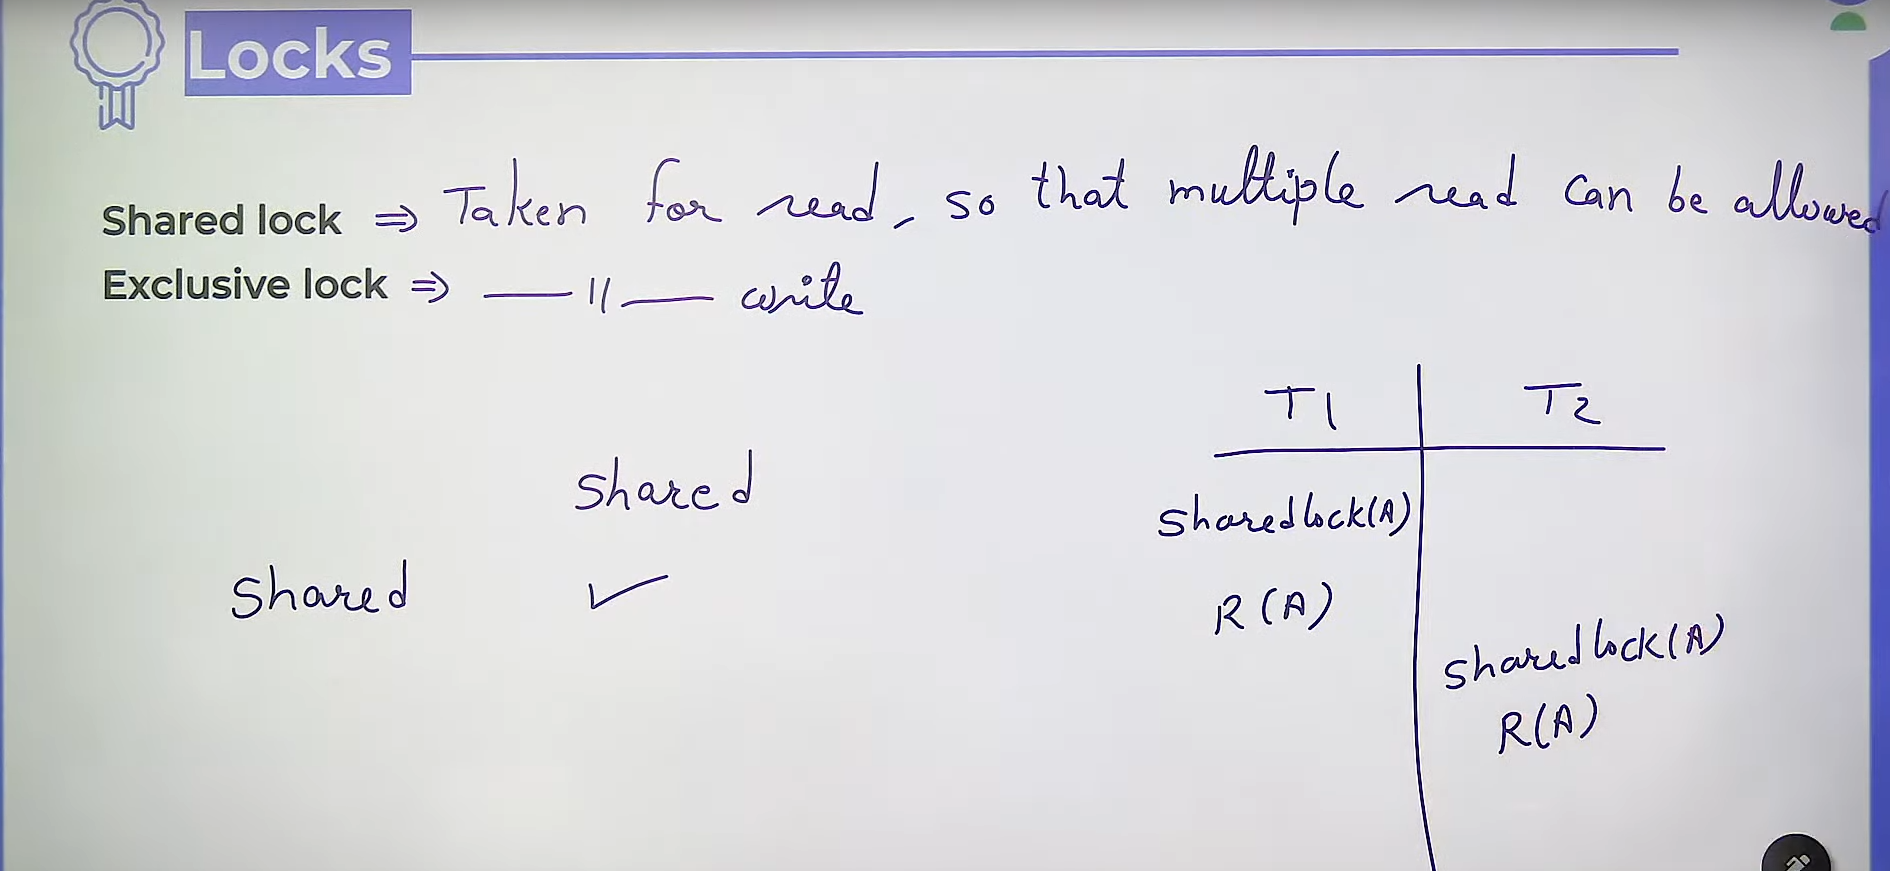 Locks
Shared lock ⇒ Taken for read, so that multiple read can be allowed
Exclusive lock ⇒ —— 〃 —— write
T1 T2
Shared
Sharedlock(A)
Shared ✓
R(A)
Sharedlock(A)
R(A)